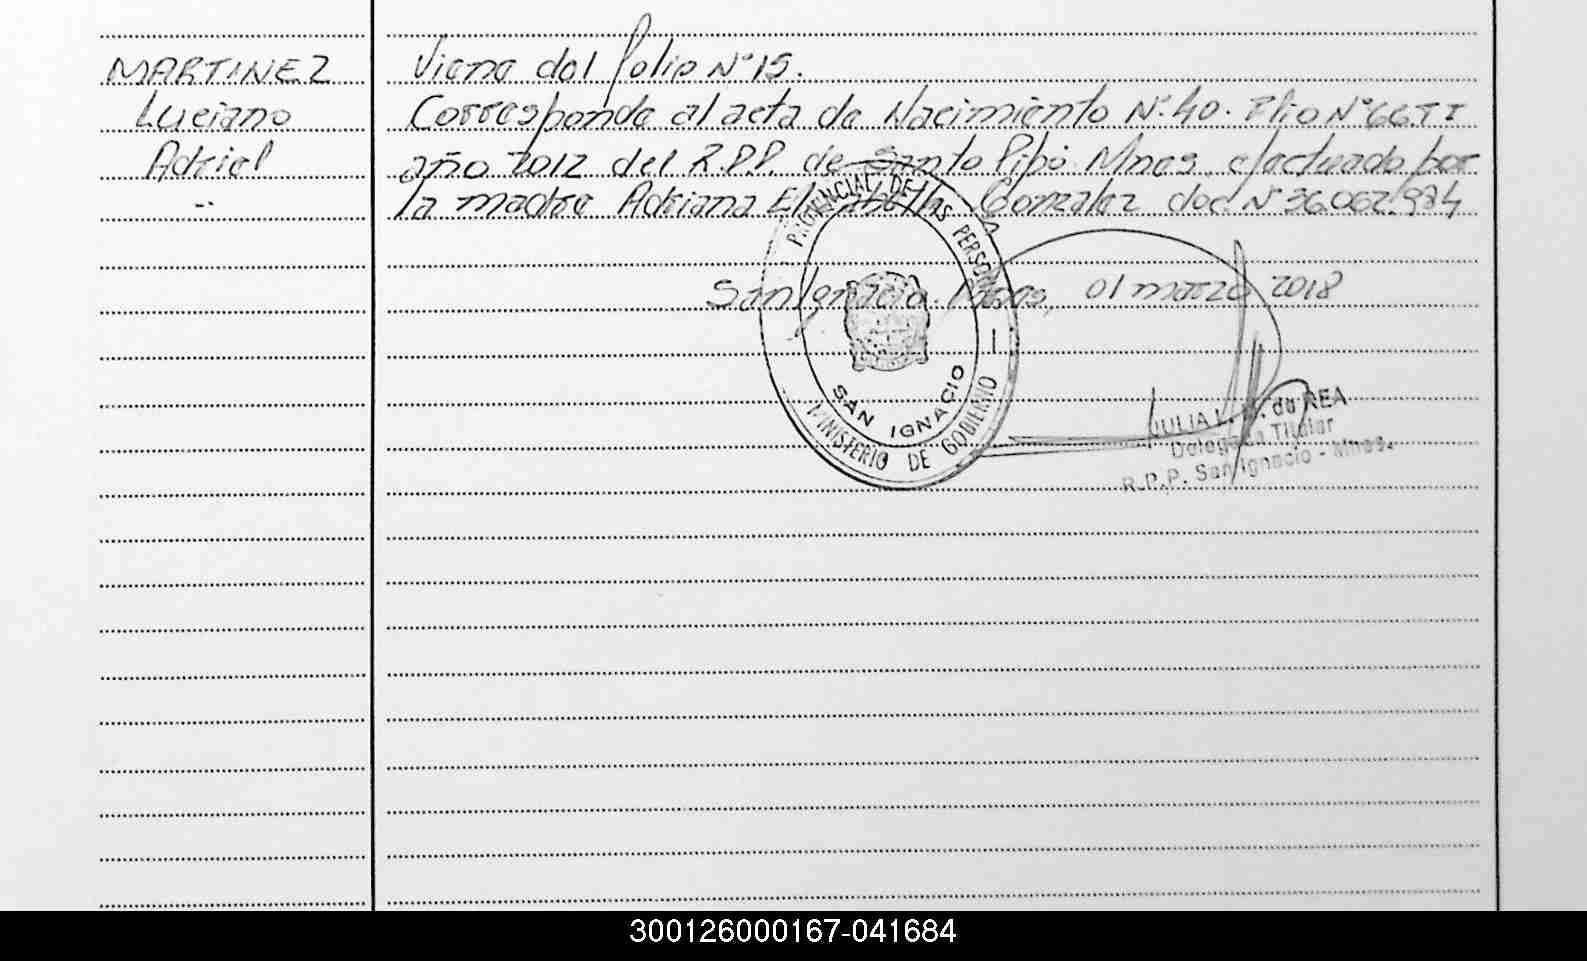 MARTINEZ
Luciano
Adriel
-"-
Viene del folio N° 15.
Corresponde al acta de Nacimiento N° 40. Flio N° 66. TI
año 2012 del R.P.P. de Santo Pipó. Mnes. efectuado por
la madre Adriana Elizabeth Gonzalez doc N° 36.062.984
San Ignacio. Mnes, 01 marzo 2018
PROVINCIAL DE LAS PERSONAS
SAN IGNACIO
MINISTERIO DE GOBIERNO
JULIA L. de REA
Delegada Titular
R.P.P. San Ignacio - Mnes.
300126000167-041684